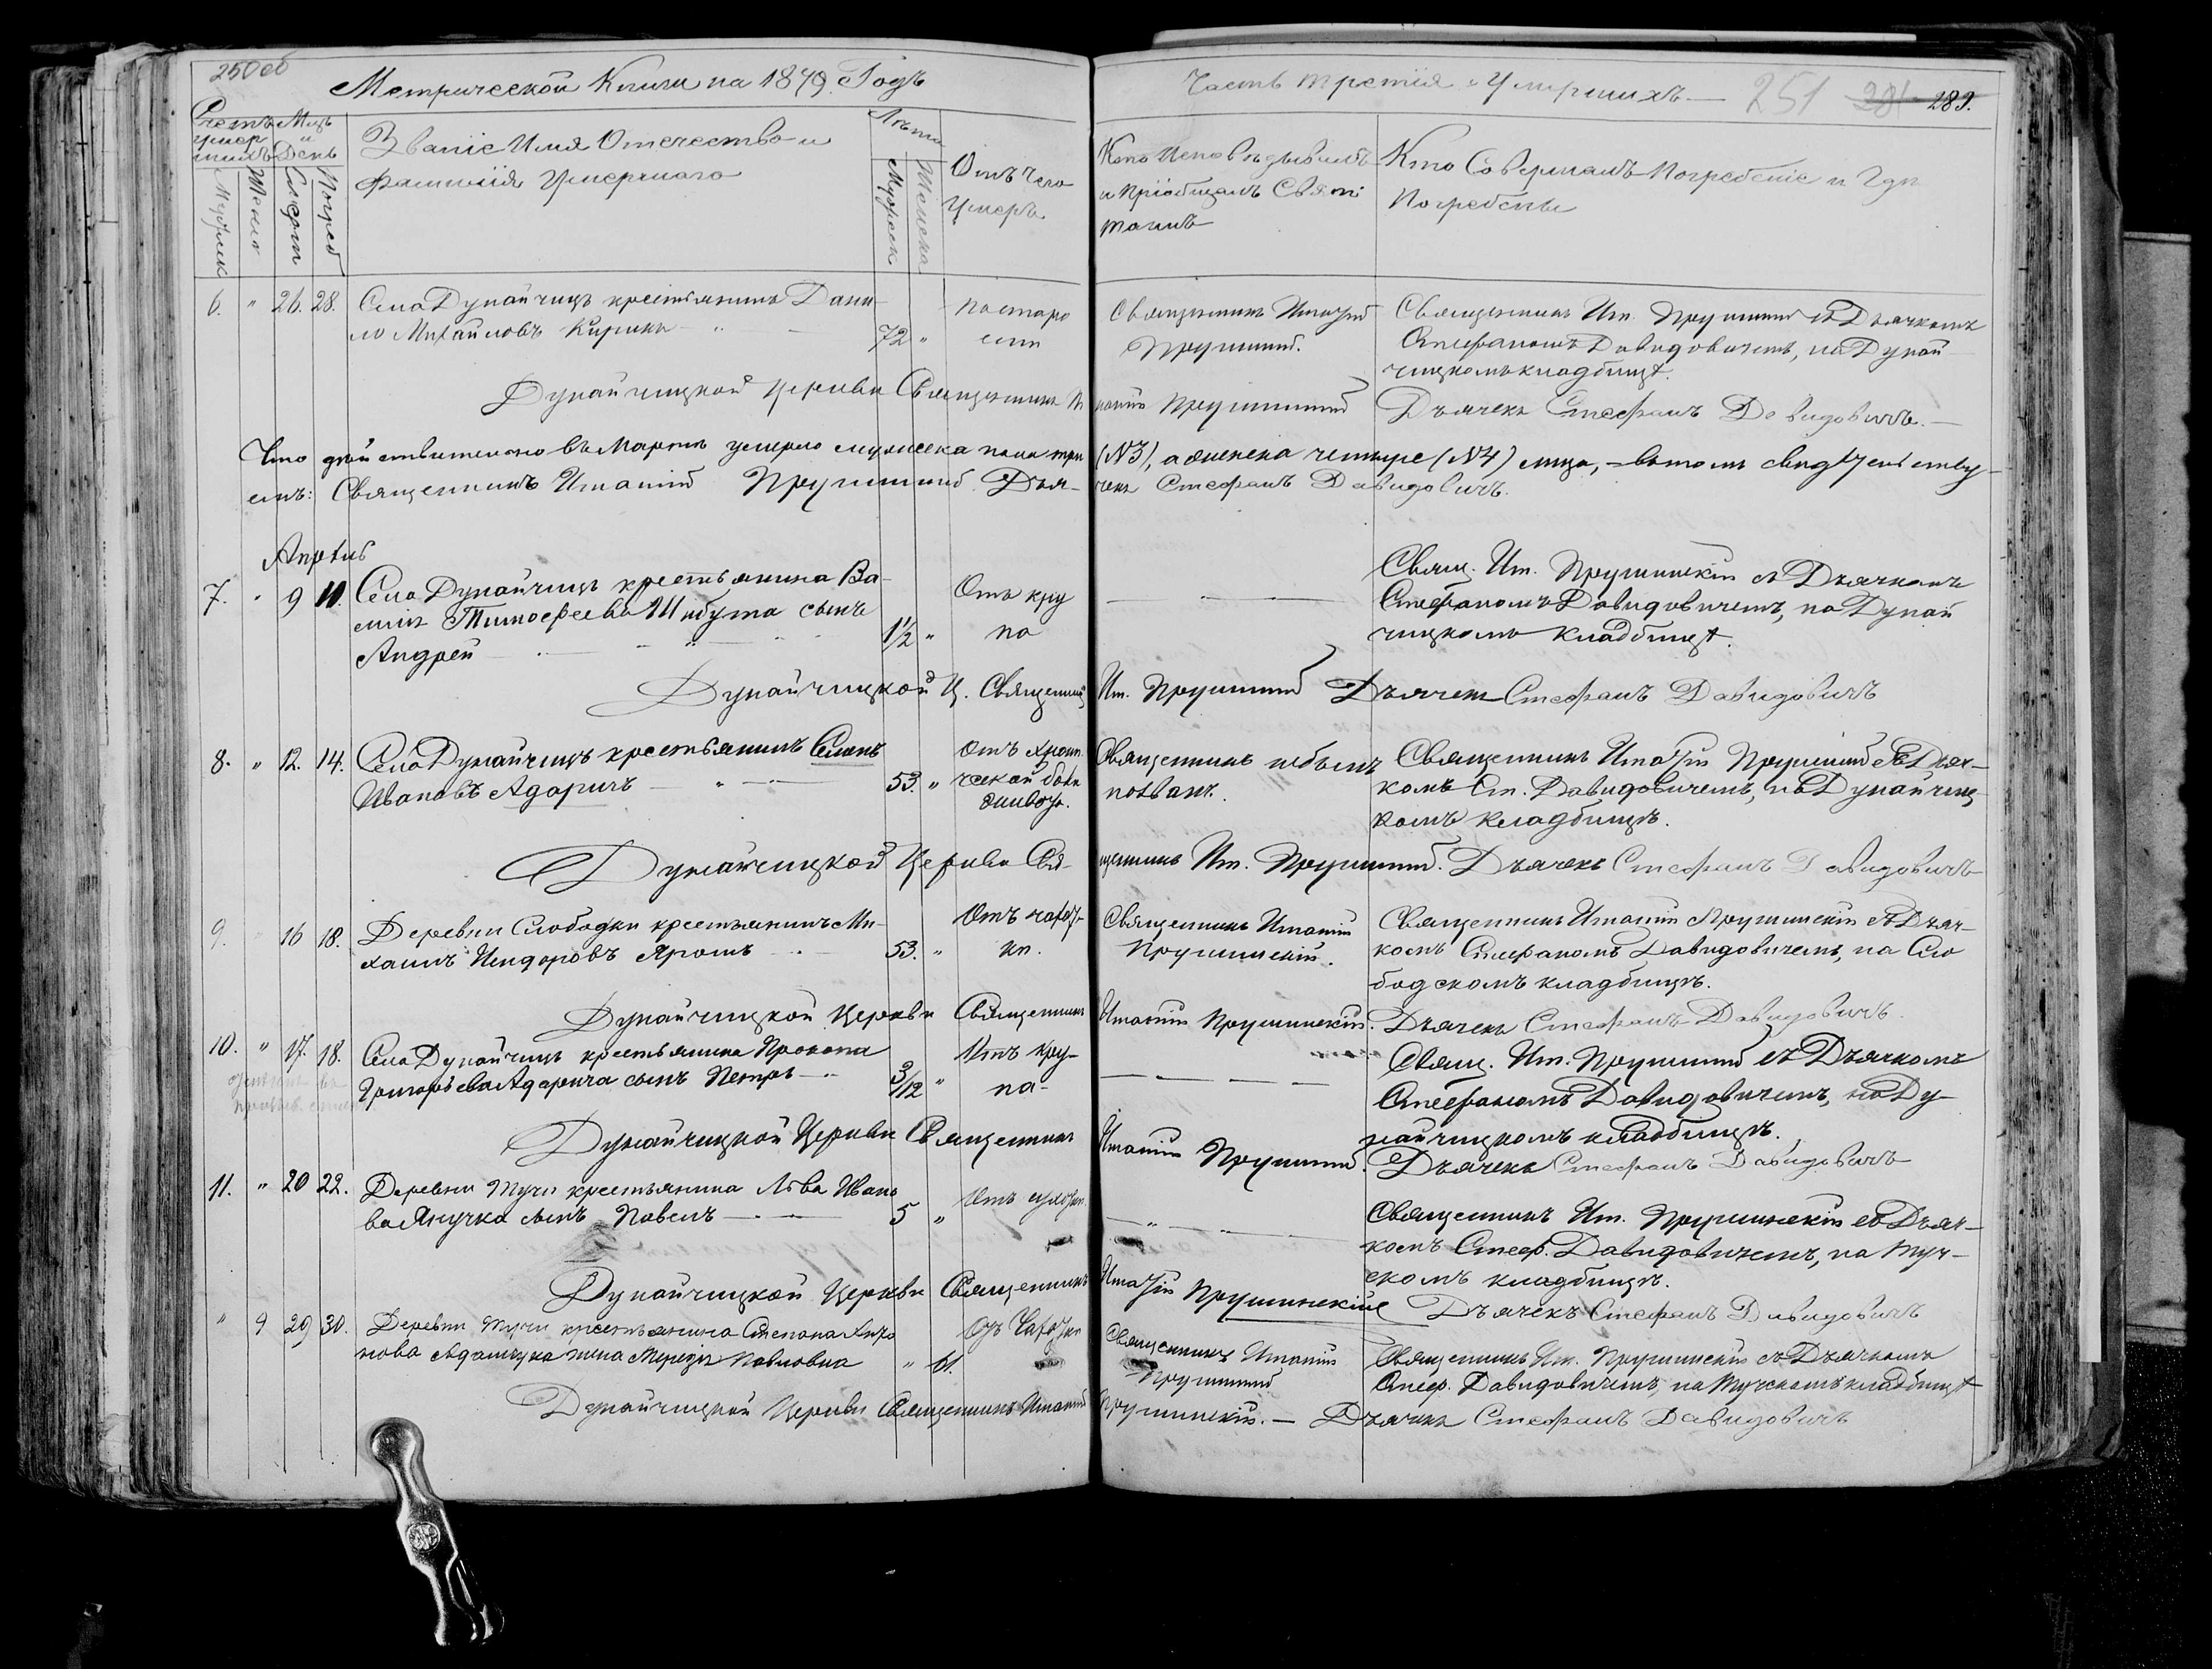 250 об
Метрической Книги на 1879 Годъ
Часть третія о Умершихъ
251 281 289.
Счетъ умершихъ
Мужск
Женс
Мцъ и День
Смерти
Погреб
Званіе Имя Отечество и
фамилія Умершаго
Лѣта
Мужеск
Женска
Отъ чего
Умеръ
Кто Исповѣдывалъ
и пріобщалъ Свят:
таинъ
Кто Совершалъ Погребеніе и Гдѣ
Погребены
6. " 26. 28. Села Дунайчицъ крестьянинъ Дани-
ло Михайловъ Кирикъ 72 "
по старо
сти
Священникъ Игнатій
Прушинскій.
Священникъ Иг. Прушинскій съ Дьячкомъ
Стефаномъ Давидовичемъ, на Дунай
чицкомъ кладбищѣ.
Дунайчицкой Церкви Священникъ Игнатій Прушинскій Дьячекъ Стефанъ Давидовичъ.
Что дѣйствительно въ Мартѣ умерло мужеска пола три (№3), а женска четыре (№4) лица, въ томъ свидѣтельству-
емъ: Священникъ Игнатій Прушинскій Дья- чекъ Стефанъ Давидовичъ.
Апрѣль
7. " 9 11. Села Дунайчицъ крестьянина Ва-
силія Тимофеева Шибута сынъ
Андрей 1½ "
Отъ кру
па
Свящ. Иг. Прушинскій съ Дьячкомъ
Стефаномъ Давидовичемъ, на Дунай
чицкомъ кладбищѣ.
Дунайчицкой Ц. Священникъ Иг. Прушинскій Дьячекъ Стефанъ Давидовичъ
8. " 12. 14. Села Дунайчицъ крестьянинъ Семенъ
Ивановъ Адаричъ 53. "
Отъ хрони
ческой болѣ
Священникъ небылъ
позванъ.
Священникъ Игнатій Прушинскій съ Дьяч-
комъ Ст. Давидовичемъ, на Дунайчиц
комъ кладбищѣ.
Дунайчицкой Церкви Свя- щенникъ Иг. Прушинскій. Дьячекъ Стефанъ Давидовичъ
9. " 16 18. Деревни Слободки крестьянинъ Ми-
хаилъ Исидоровъ Яромъ 53. "
Отъ чахот-
ки.
Священникъ Игнатій
Прушинскій.
Священникъ Игнатій Прушинскій съ Дьяч-
комъ Стефаномъ Давидовичемъ, на Сло
бодскомъ кладбищѣ.
Дунайчицкой Церкви Священникъ Игнатій Прушинскій. Дьячекъ Стефанъ Давидовичъ.
10. " 17. 18. Села Дунайчицъ крестьянина Прокопа
Григорьева Адарича сынъ Петръ 3/12 "
Отъ кру-
па
Свящ. Иг. Прушинскій съ Дьячкомъ
Стефаномъ Давидовичемъ, на Ду-
найчицкомъ кладбищѣ.
Дунайчицкой Церкви Священникъ Игнатій Прушинскій. Дьячекъ Стефанъ Давидовичъ
11. " 20 22. Деревни Тучи крестьянина Льва Ивано
ва Янучка сынъ Павелъ 5 "
Священникъ Иг. Прушинскій съ Дьяч-
комъ Стеф. Давидовичемъ, на Туч-
скомъ кладбищѣ.
Дунайчицкой Церкви Священникъ Игнатій Прушинскій Дьячекъ Стефанъ Давидовичъ
" 9 29 30. Деревни Тучи крестьянина Степана Анто
нова Адамчука жена Павловна " 61.
Отъ Чахотки
Священникъ Игнатій
Прушинскій
Священникъ Иг. Прушинскій съ Дьячкомъ
Стеф. Давидовичемъ, на Тучскомъ кладбищѣ
Дунайчицкой Церкви Священникъ Игнатій Прушинскій. — Дьячекъ Стефанъ Давидовичъ